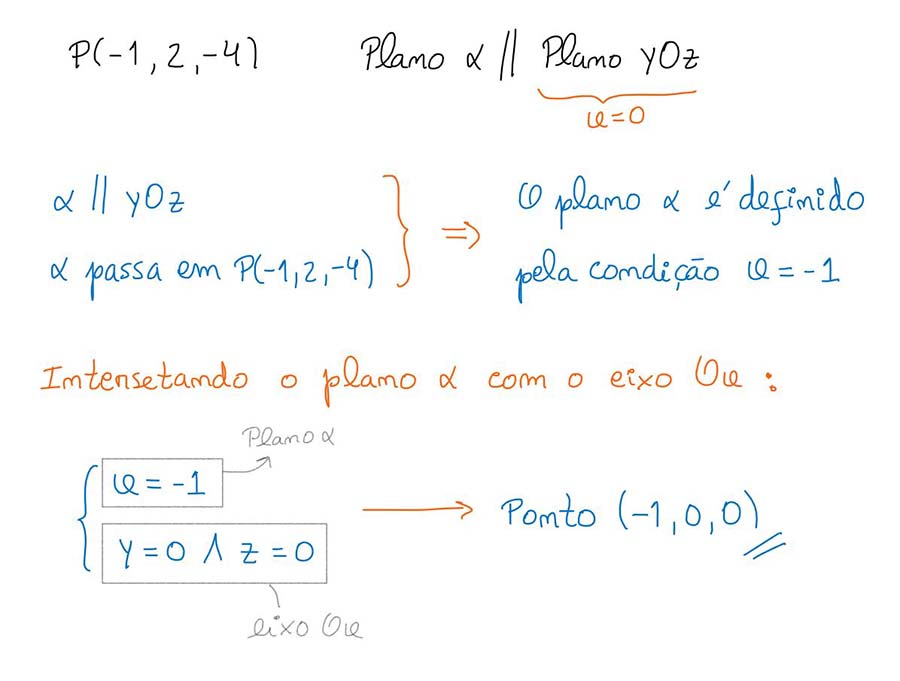 P(-1, 2, -4) Plano α // Plano yOz
x=0
α // yOz
α passa em P(-1, 2, -4)
⇒
O plano α é definido
pela condição x = -1
Intersetando o plano α com o eixo Ox :
Plano α
x = -1
y = 0 ∧ z = 0
eixo Ox
→ Ponto (-1, 0, 0)